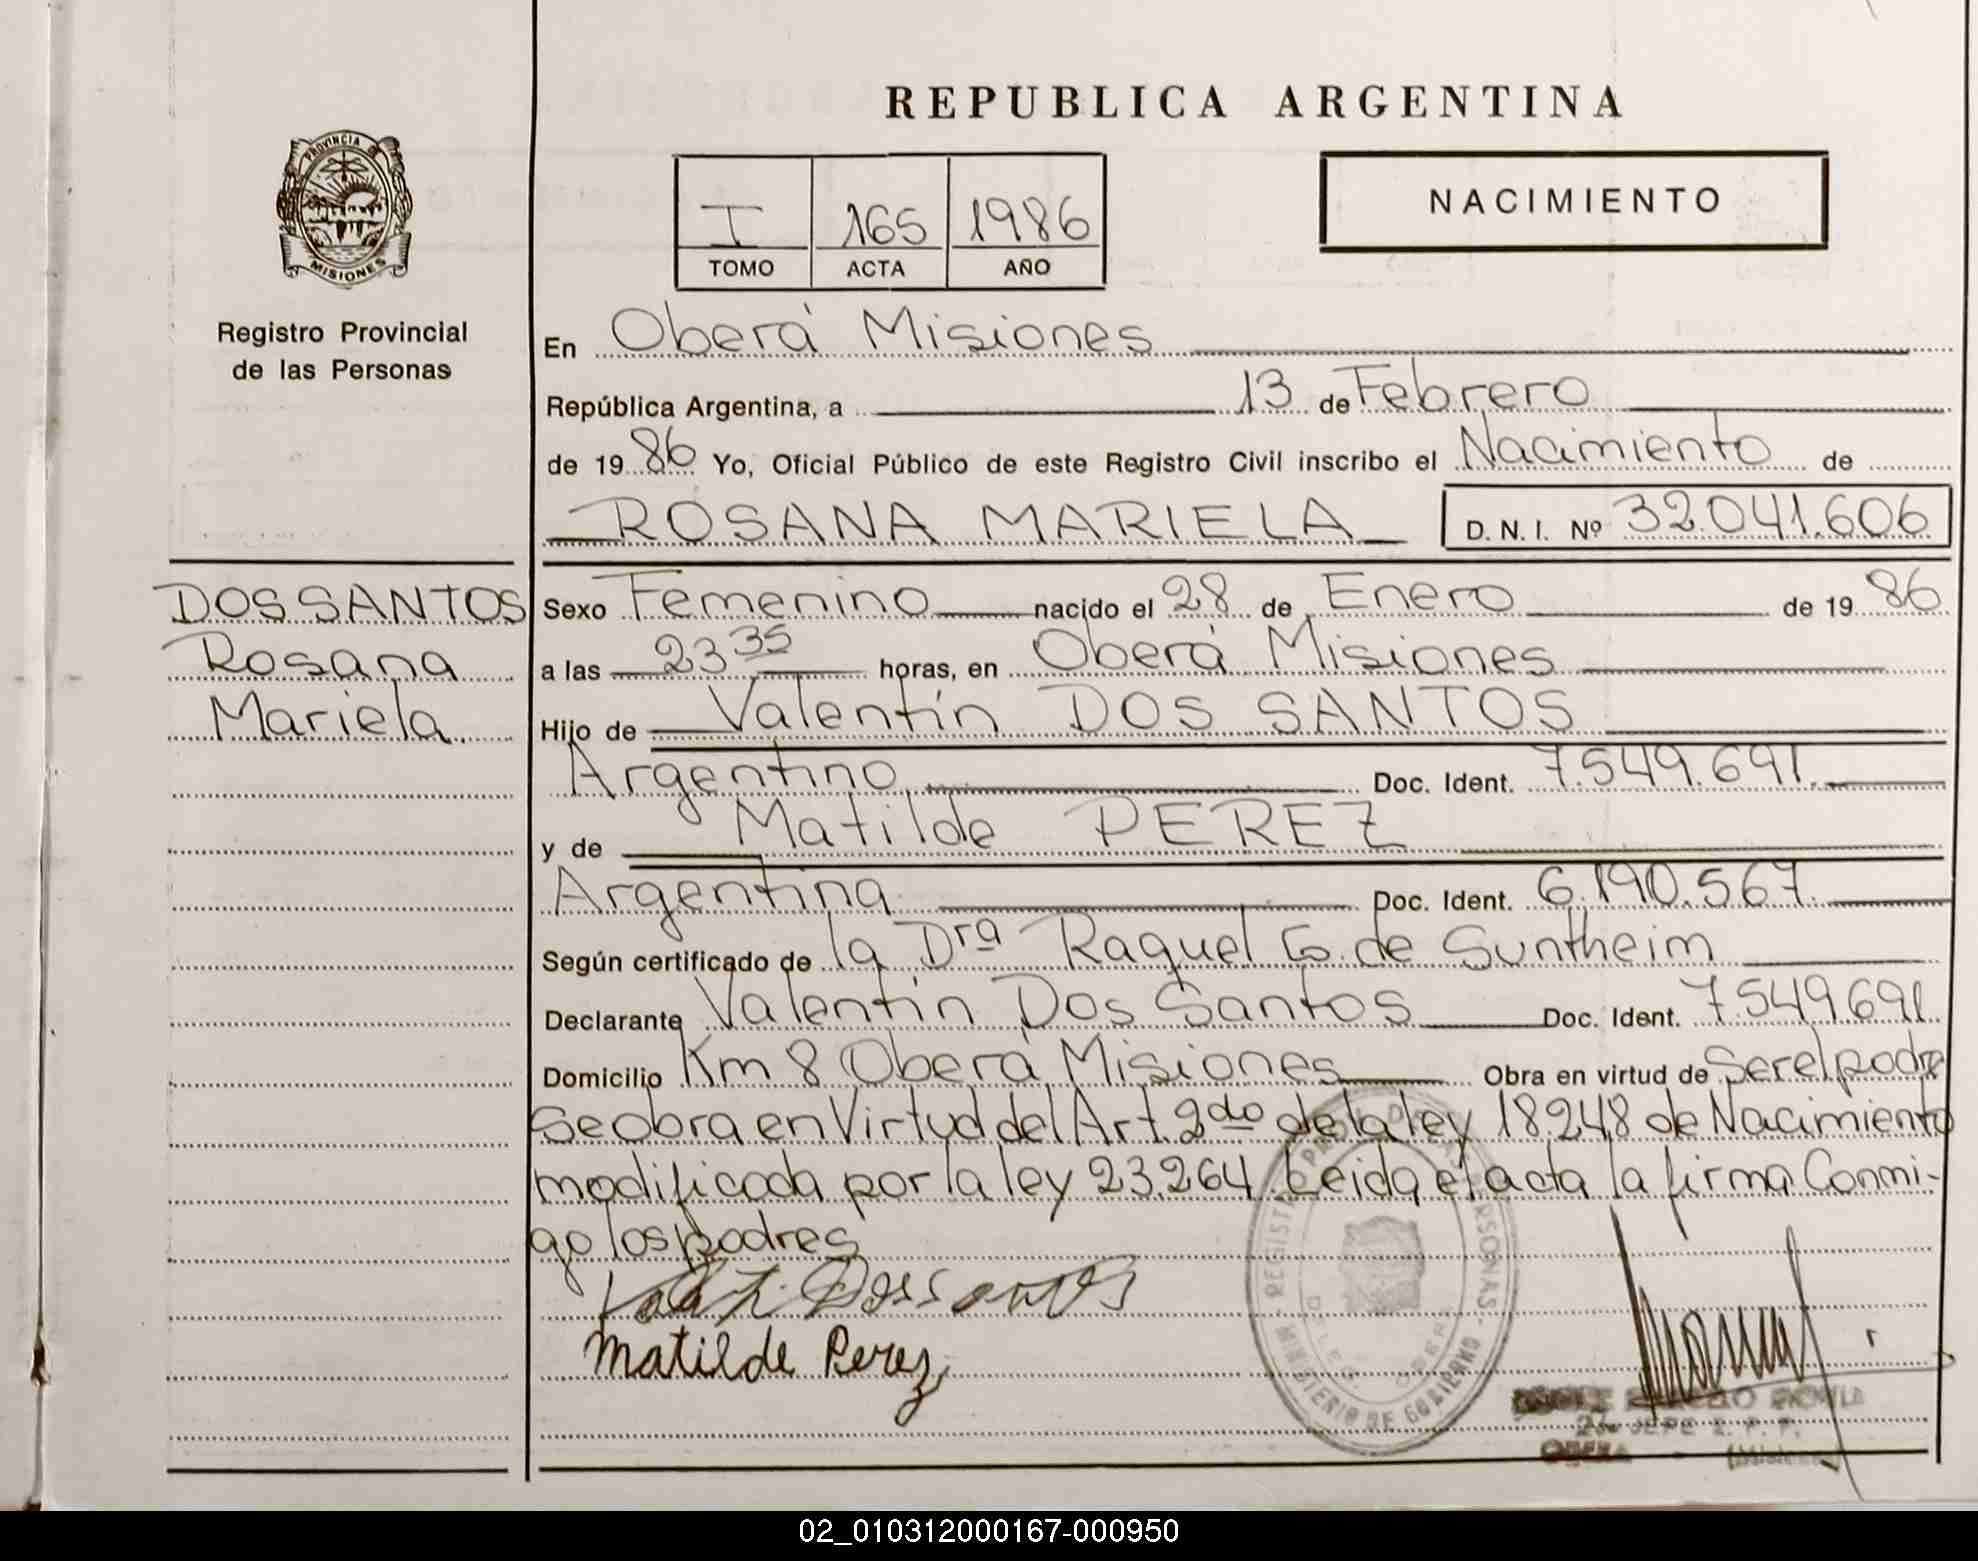 REPUBLICA ARGENTINA
PROVINCIA DE
MISIONES
Registro Provincial
de las Personas
I 165 1986
TOMO ACTA AÑO
NACIMIENTO
En Oberá Misiones
República Argentina, a 13 de Febrero
de 1986 Yo, Oficial Público de este Registro Civil inscribo el Nacimiento de
ROSANA MARIELA D. N. I. Nº 32.041.606
DOS SANTOS
Rosana
Mariela.
Sexo Femenino nacido el 28 de Enero de 1986
a las 23 35 horas, en Oberá Misiones
Hijo de Valentín DOS SANTOS
Argentino Doc. Ident. 7.549.691.
y de Matilde PEREZ
Argentina Doc. Ident. 6.190.567.
Según certificado de la Dra Raquel G. de Suntheim
Declarante Valentín Dos Santos Doc. Ident. 7.549.691.
Domicilio Km 8 Oberá Misiones Obra en virtud de Ser el padre
Se obra en Virtud del Art. 2do de la ley 18248 de Nacimiento
modificada por la ley 23.264. Leida el acta la firma Conmi-
go los padres
Dos Santos
Matilde Perez
REGISTRO DE LAS PERSONAS
MINISTERIO DE GOBIERNO
JEFE R. P. P.
OBERA (Misiones)
02_010312000167-000950